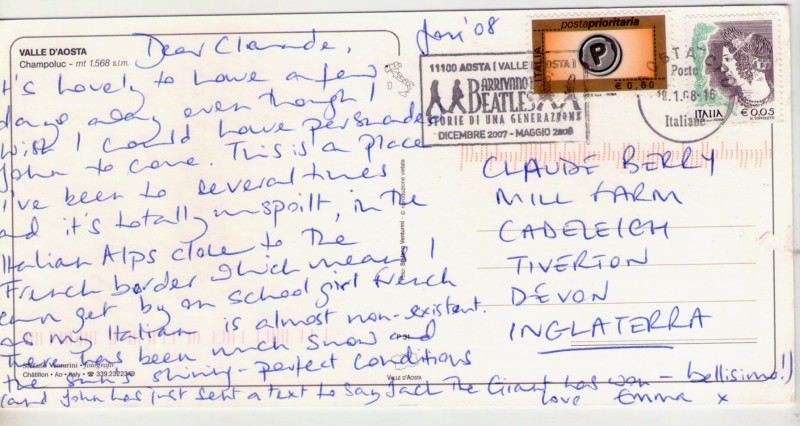 VALLE D'AOSTA
Champoluc - mt 1.568 s.l.m.
Jan '08
Dear Claude,
It's lovely to have a few
days away even though I
wish I could have persuaded
John to come. This is a place
I've been to several times
and it's totally unspoilt, in the
Italian Alps close to the
French border which means I
can get by on school girl French
as my Italian is almost non-existent.
There has been much snow and
the sun's shining - perfect conditions
(and John has just sent a text to say Jack The Giant has won - bellisimo!)
love Emma x
postaprioritaria
P
ITALIA
€ 0,60
ITALIA
€ 0,05
11100 AOSTA (VALLE D'AOSTA)
ARRIVANO I
BEATLES
STORIE DI UNA GENERAZIONE
DICEMBRE 2007 - MAGGIO 2008
POSTA
Poste
8.1.08-16
Italiane
CLAUDE BERRY
MILL FARM
CADELEIGH
TIVERTON
DEVON
INGLATERRA
Stefano Venturini - fotografo
Châtillon • Ao • Italy • ☎ 339.2322349
P 31
VALLE D'AOSTA
foto: Stefano Venturini - © riproduzione vietata